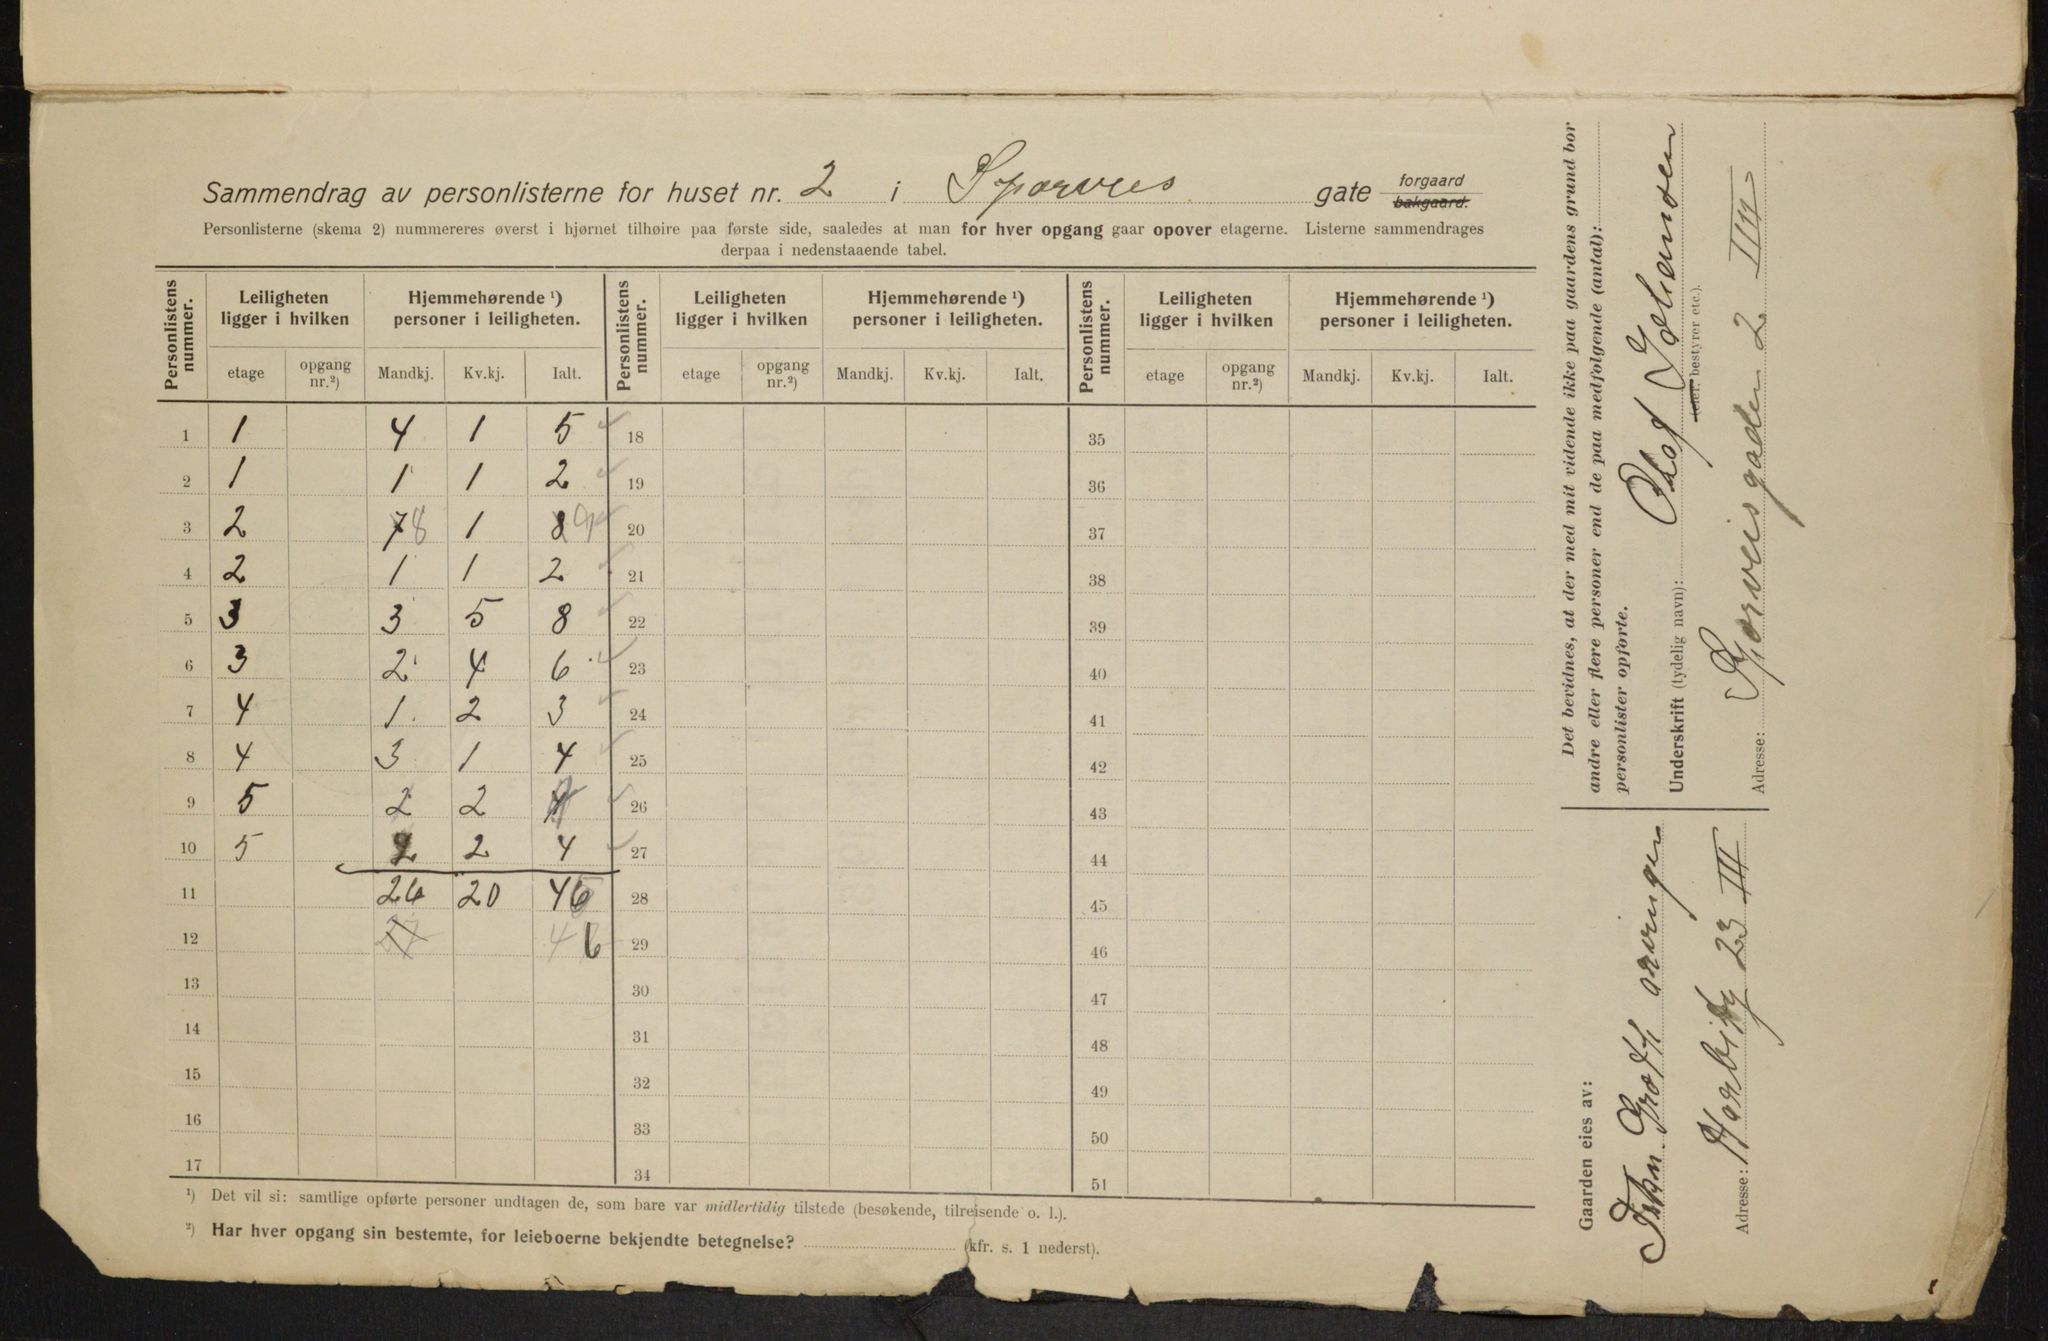 Sammendrag av personlisterne for huset nr. 2 i Sporveis gate forgaard bakgaard.
Personlisterne (skema 2) nummereres øverst i hjørnet tilhøire paa første side, saaledes at man for hver opgang gaar opover etagerne. Listerne sammendrages
derpaa i nedenstaaende tabel.
Personlistens nummer. Leiligheten ligger i hvilken Hjemmehørende ¹) personer i leiligheten. Personlistens nummer. Leiligheten ligger i hvilken Hjemmehørende ¹) personer i leiligheten. Personlistens nummer. Leiligheten ligger i hvilken Hjemmehørende ¹) personer i leiligheten.
etage opgang nr.²) Mandkj. Kv.kj. Ialt. etage opgang nr.²) Mandkj. Kv.kj. Ialt. etage opgang nr.²) Mandkj. Kv.kj. Ialt.
1 1 4 1 5 18 35
2 1 1 1 2 19 36
3 2 7 8 1 8 9 20 37
4 2 1 1 2 21 38
5 3 3 5 8 22 39
6 3 2 4 6 23 40
7 4 1 2 3 24 41
8 4 3 1 4 25 42
9 5 2 2 4 26 43
10 5 2 2 4 27 44
11 26 20 46 28 45
12 46 29 46
13 30 47
14 31 48
15 32 49
16 33 50
17 34 51
¹) Det vil si: samtlige opførte personer undtagen de, som bare var midlertidig tilstede (besøkende, tilreisende o. l.).
²) Har hver opgang sin bestemte, for leieboerne bekjendte betegnelse? (kfr. s. 1 nederst).
Det bevidnes, at der med mit vidende ikke paa gaardens grund bor
andre eller flere personer end de paa medfølgende (antal):
personlister opførte.
Underskrift (tydelig navn): Olaf Johansen
(eier, bestyrer etc.).
Adresse: Sporveisgaden 2 III
Gaarden eies av:
Grøtt arvinger
Adresse: 23 III